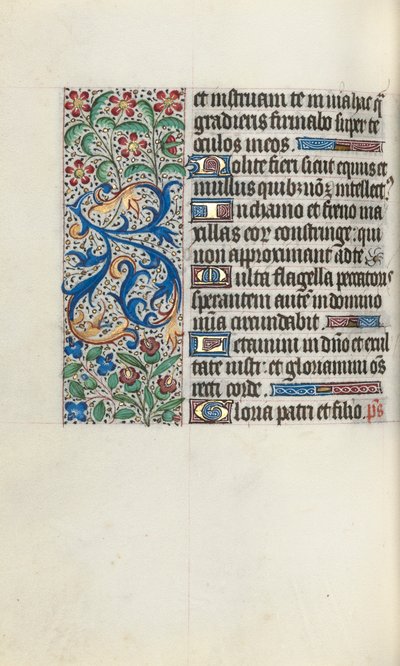 et instruam te in via hac q̄
gradieris firmabo super te
oculos meos.
Nolite fieri sicut equus et
mullus quib: nō ē intellect⁹.
In chamo et freno ma
xillas eor constringe: qui
non approximant ad te
Multa flagella peccatoris
sperantem aute in domino
mīa circundabit
Letamini in dn̄o et exul
tate iusti: et gloriamini oēs
recti corde.
Gloria patri et filio. ps̄